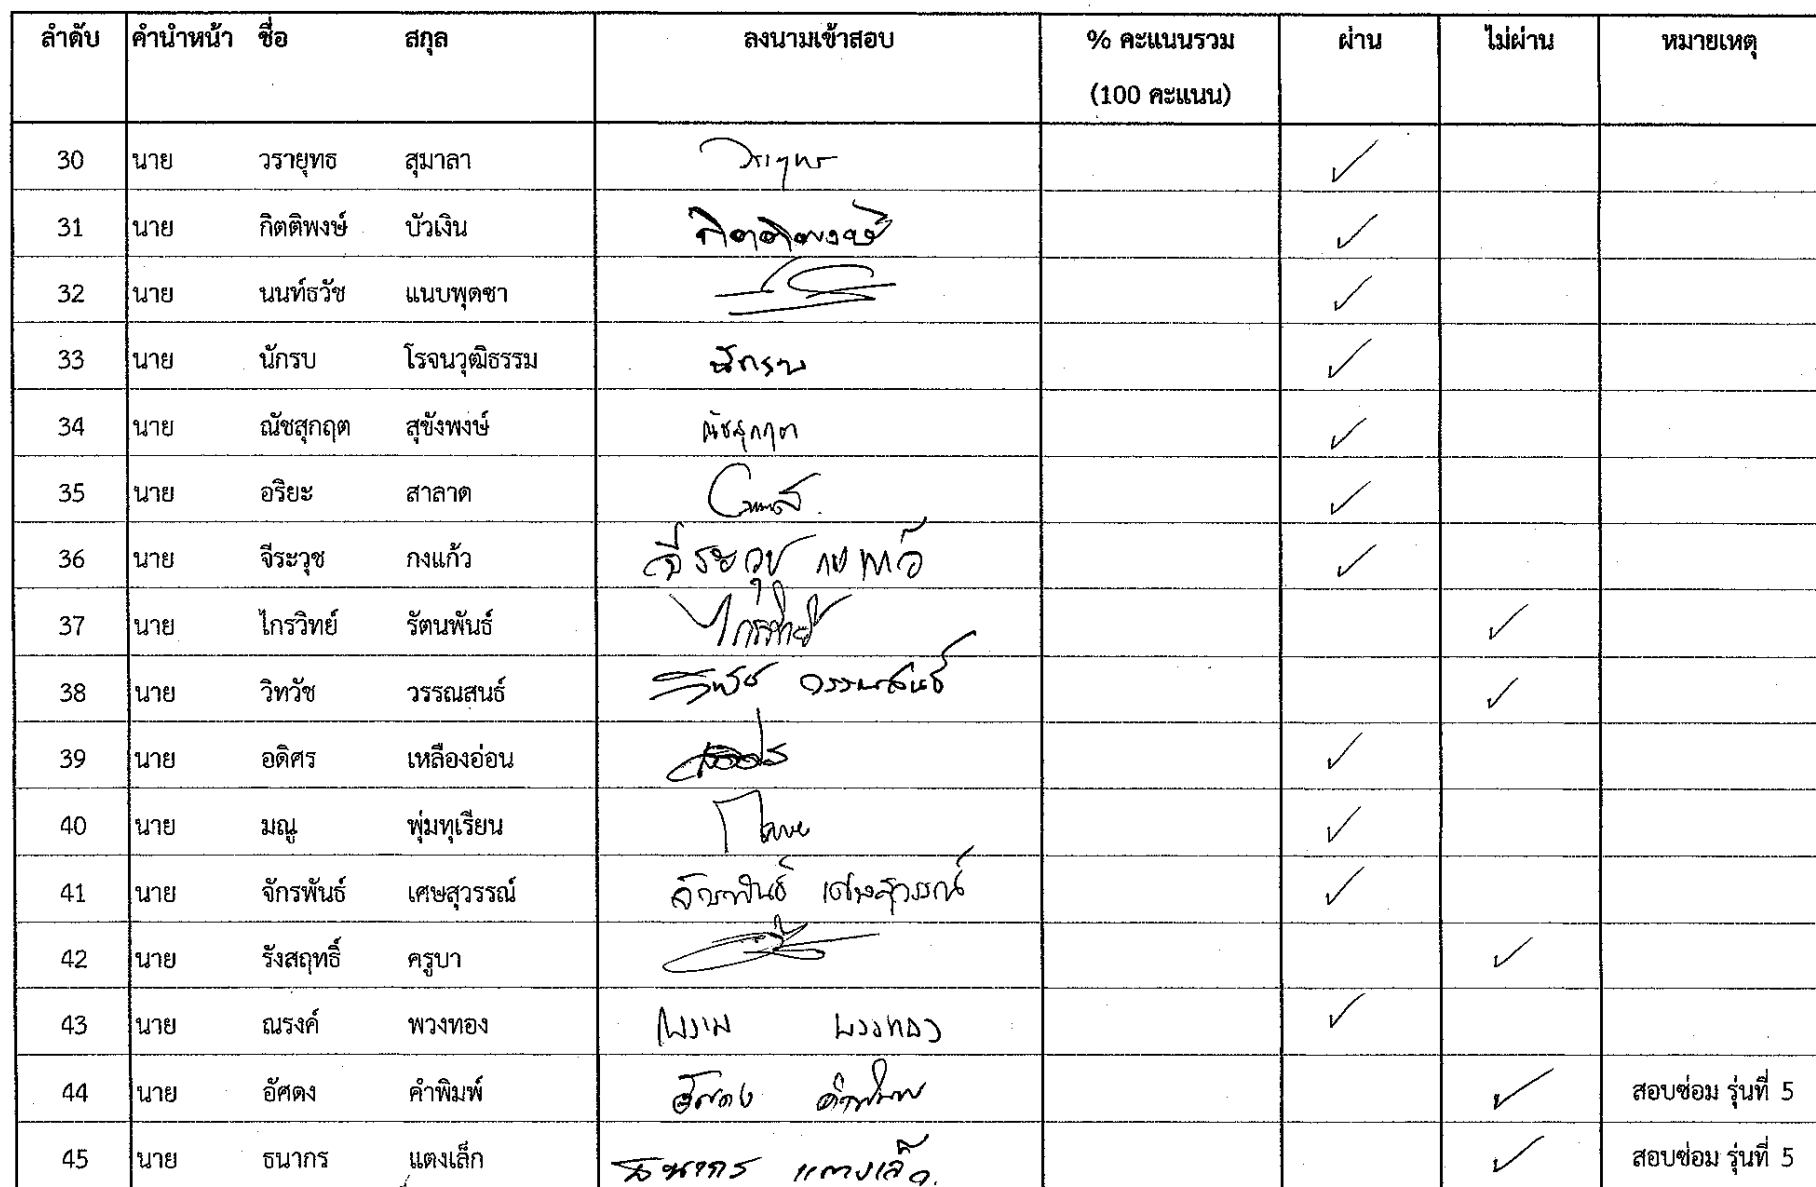 ลำดับ คำนำหน้า ชื่อ สกุล ลงนามเข้าสอบ % คะแนนรวม ผ่าน ไม่ผ่าน หมายเหตุ
(100 คะแนน)
30 นาย วรายุทธ สุมาลา วรายุทธ ✓
31 นาย กิตติพงษ์ บัวเงิน กิตติพงษ์ ✓
32 นาย นนท์ธวัช แนบพุดซา ✓
33 นาย นักรบ โรจนวุฒิธรรม นักรบ ✓
34 นาย ณัชสุกฤต สุขังพงษ์ ณัชสุกฤต ✓
35 นาย อริยะ สาลาด ✓
36 นาย จีระวุช กงแก้ว จีระวุช กงแก้ว ✓
37 นาย ไกรวิทย์ รัตนพันธ์ ไกรวิทย์ ✓
38 นาย วิทวัช วรรณสนธ์ วิทวัช วรรณสนธ์ ✓
39 นาย อดิศร เหลืองอ่อน ✓
40 นาย มณู พุ่มทุเรียน ✓
41 นาย จักรพันธ์ เศษสุวรรณ์ จักรพันธ์ เศษสุวรรณ์ ✓
42 นาย รังสฤทธิ์ ครูบา ✓
43 นาย ณรงค์ พวงทอง พวงทอง ✓
44 นาย อัศดง คำพิมพ์ อัศดง คำพิมพ์ ✓ สอบซ่อม รุ่นที่ 5
45 นาย ธนากร แตงเล็ก ธนากร แตงเล็ก ✓ สอบซ่อม รุ่นที่ 5